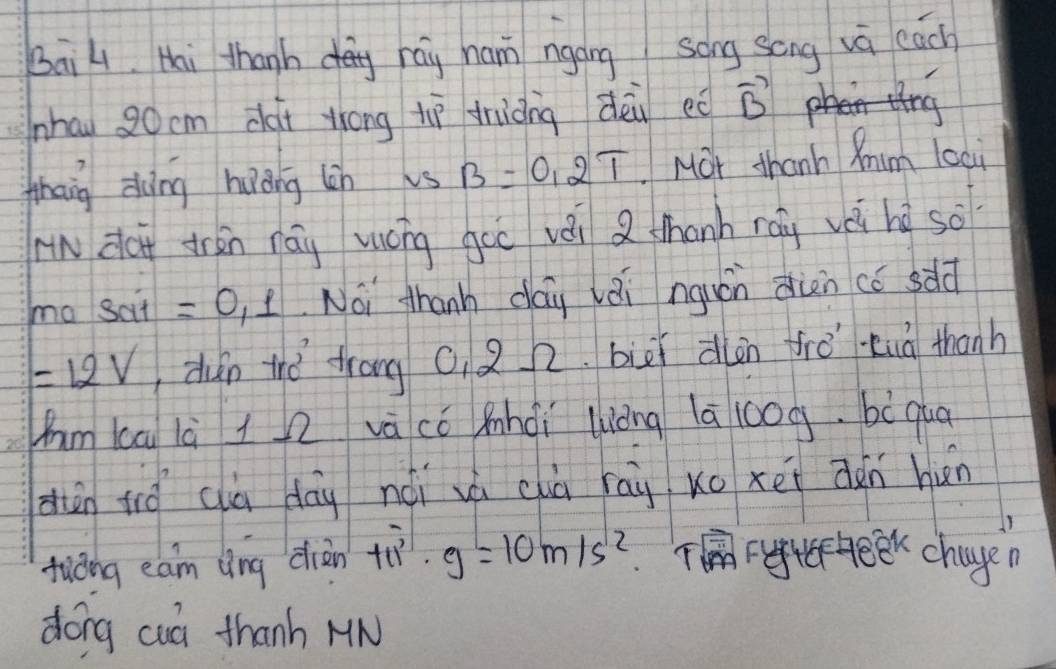 Bài 4. Hai thanh dây rây nằm ngang, song song và cách
nhau 20 cm đặt trong từ trường đều có B⃗
thẳng đứng hướng lên vs B = 0,2 T. Một thanh kim loại
MN đặt trên rây vuông góc với 2 thanh rây với hệ số
ma sát = 0,1. Nối thanh dây với nguồn điện có sđđ
= 12 V, điện trở trong 0,2 Ω. biết điện trở của thanh
kim loại là 1 Ω và có khối lượng là 100g. bỏ qua
điện trở của dây nối và của rây. Ko xét đến hiện
tượng cảm ứng điện từ. g = 10 m/s². Tìm chuyển
động của thanh MN